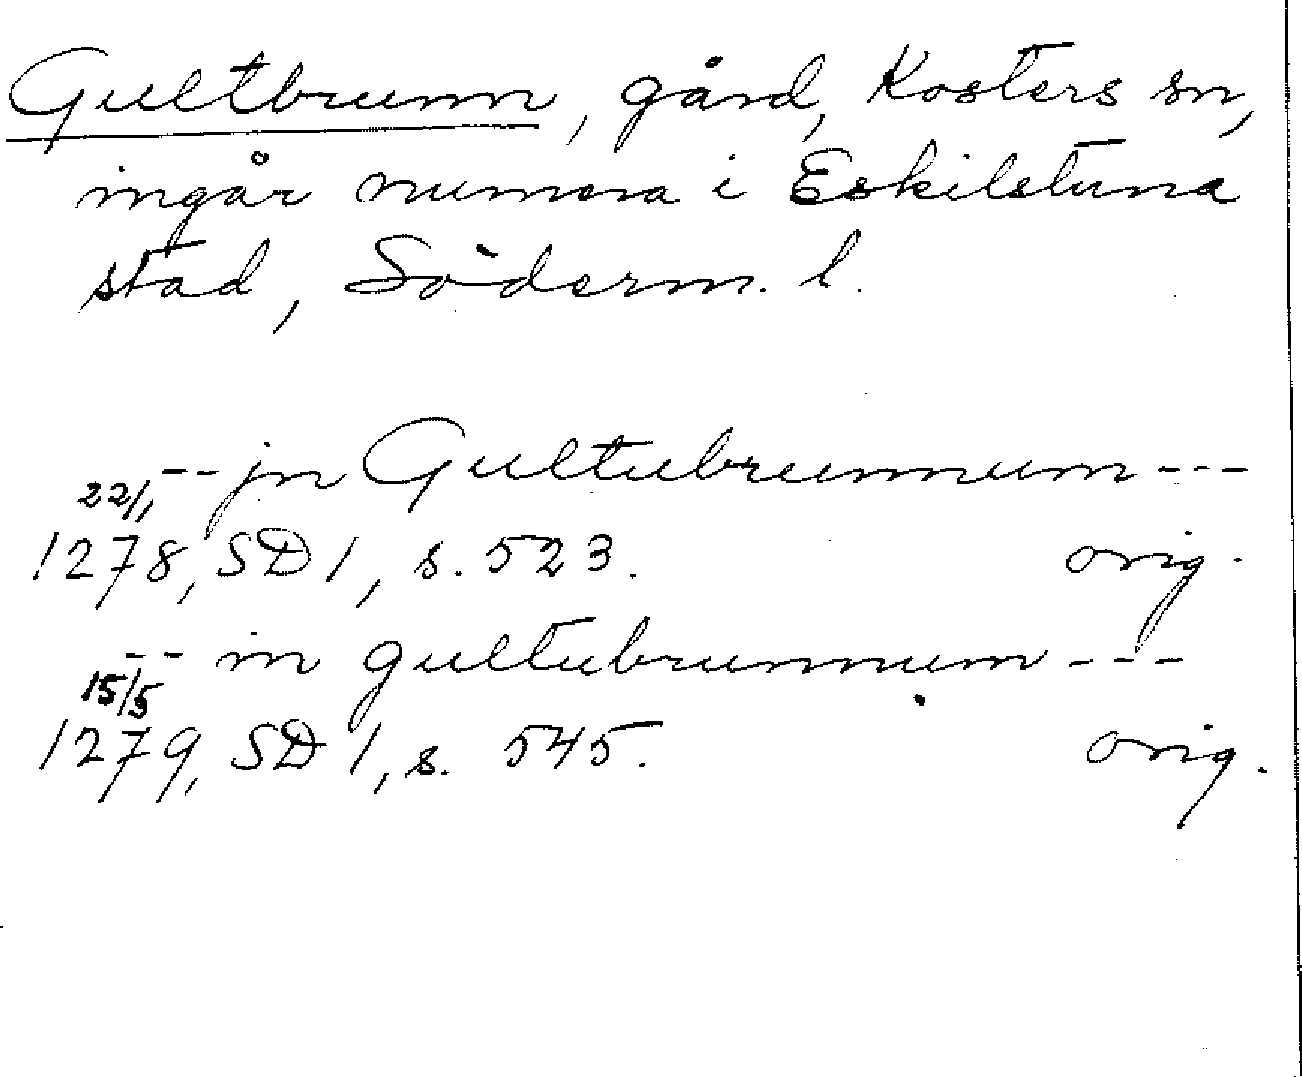 Gultbrunn, gård, Klosters sn,
ingår numera i Eskilstuna
stad, Söderm. l.
-- jn Gultubrunnum ---
22/1
1278, SD 1, s. 523. orig.
-- in gultubrunnum ---
15/5
1279, SD 1, s. 545. orig.